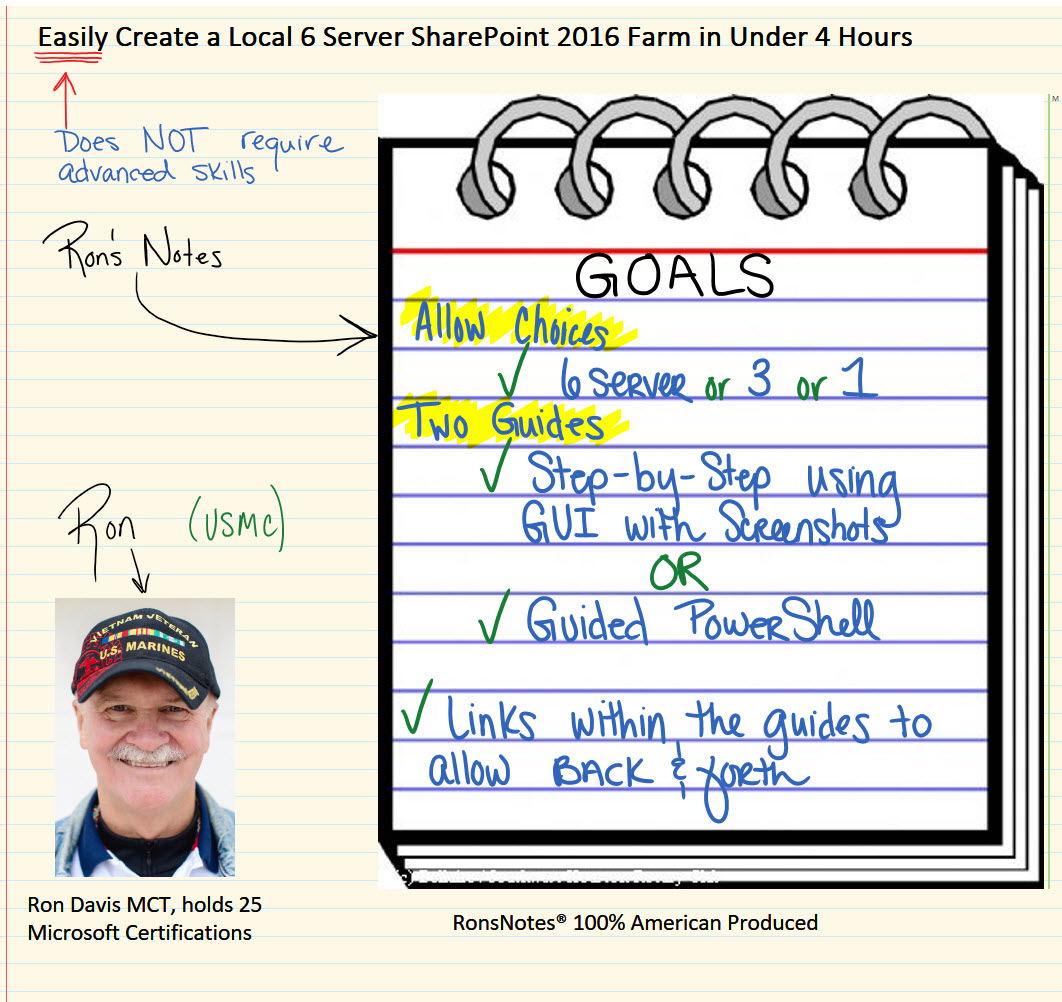 Easily Create a Local 6 Server SharePoint 2016 Farm in Under 4 Hours
Does NOT require
advanced skills
Ron's Notes
GOALS
Allow Choices
✓ 6 SERVER or 3 or 1
Two Guides
✓ Step-by-Step using
GUI with Screenshots
OR
✓ Guided PowerShell
✓ Links within the guides to
allow BACK & forth
Ron (USMC)
VIETNAM VETERAN
U.S. MARINES
Ron Davis MCT, holds 25
Microsoft Certifications
RonsNotes® 100% American Produced
M